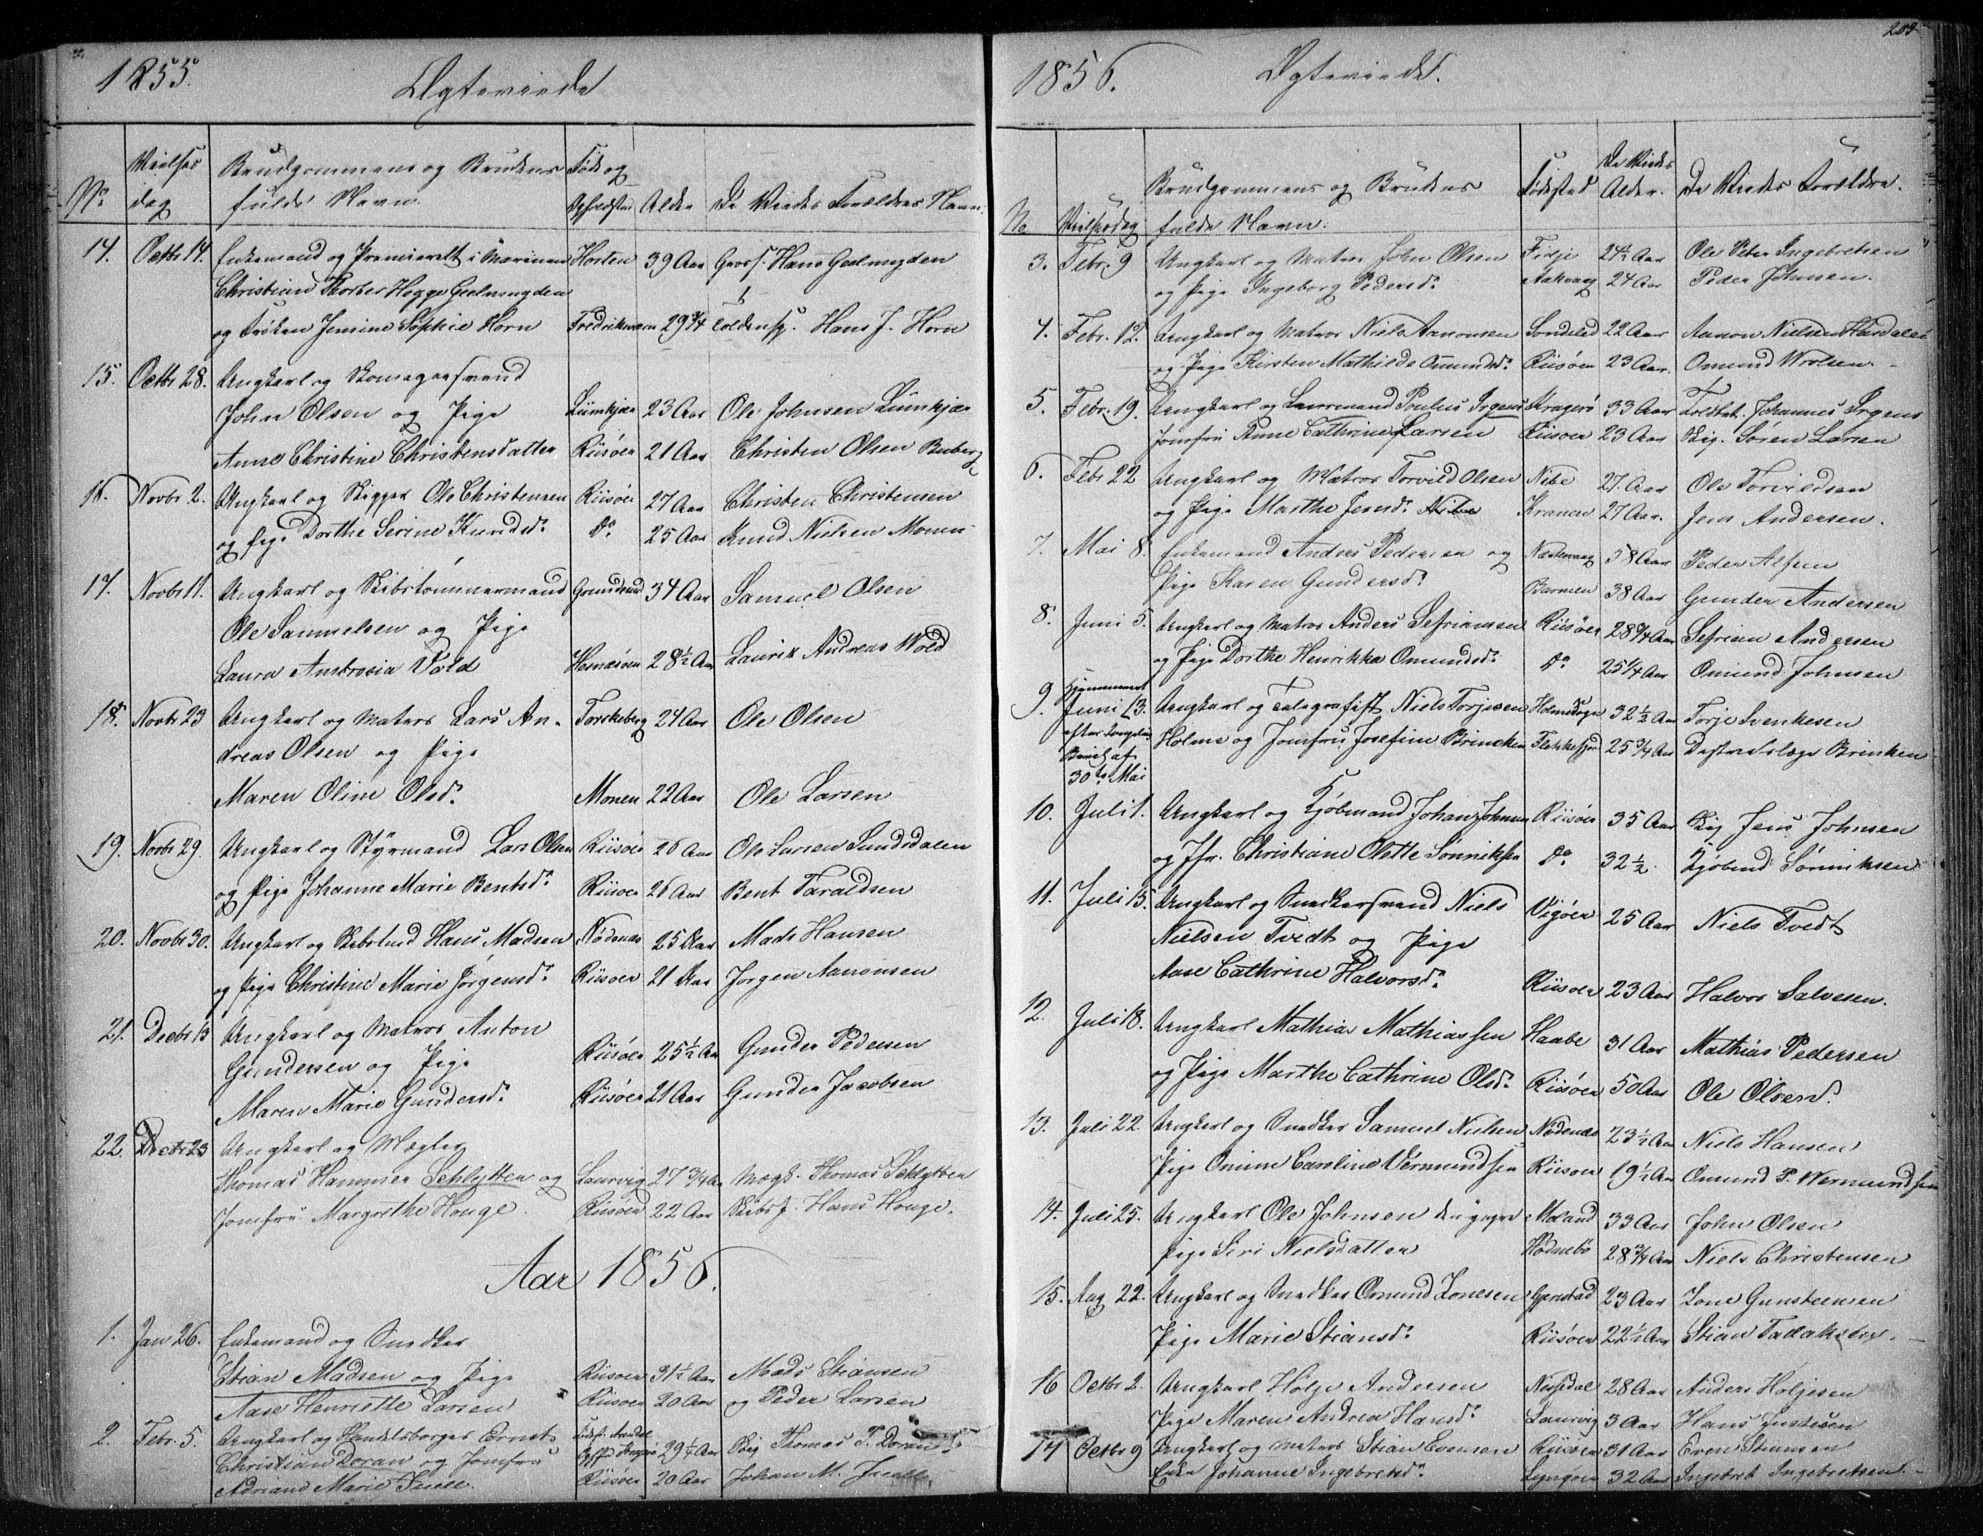 1855.
Ægteviede
No
Vielses
dag
Brudgommens og Brudens
fulde Navn.
Føde og
Opholdsted
Alder
De Viedes Forældres Navn.
14. Octbr 14. Enkemand og Premierelt i Marinen Horten 39 Aar Gross. Hans Geelmuyden
Christian Torber Hegge Geelmuyden
og Frøken Jensine Sophie Horn Fredriksværn 29 3/4 Toldinsp. Hans J. Horn
15. Octbr 28. Ungkarl og Skomagersvend
John Olsen og Pige Lumkjær 23 Aar Ole Johnsen Lumkjær
Anne Christine Christensdatter Riisøer 21 Aar Christen Olsen Buberg
16. Novbr 2. Ungkarl og Skipper Ole Christensen Riisøer 27 Aar Christen Christensen
og Pige Dorthe Serine Knudsd. Do 25 Aar Knud Nielsen Monen
17. Novbr 11. Ungkarl og Skibstømmermand Grundsund 34 Aar Samuel Olsen
Ole Samuelsen og Pige
Laura Ambrosia Wold Hesnæsøen 28 1/2 Aar Laurix Andreas Wold
18. Novbr 23 Ungkarl og Matros Lars An- Torskeberg 24 Aar Ole Olsen
dreas Olsen og Pige
Maren Oline Olsd. Monen 22 Aar Ole Larsen
19. Novbr 29. Ungkarl og Styrmand Lars Olsen Riisøer 26 Aar Ole Larsen Sundsdalen
og Pige Johanne Marie Bentsd. Riisøer 26 Aar Bent Taraldsen
20. Novbr 30. Ungkarl og Hans Madsen Nødenæs 25 Aar Mads Hansen
og Pige Christine Marie Jørgensd. Riisøer 21 Aar Jørgen Aanonsen
21. Decbr 13 Ungkarl og Matros Anton
Gundersen og Pige Riisøer 25 1/2 Aar Gunder Pedersen
Maren Marie Gundersd. Riisøer 21 Aar Gunder Jacobsen
22. Decbr 23 Ungkarl og Mægler
Thomas Hammer Schlytter og Laurvig 27 3/4 Aar Mægl. Thomas Schlytter
Jomfru Margrethe Houge. Riisøer 22 Aar Skibsf. Hans Houge.
Aar 1856.
1. Jan 26. Enkemand og Snedker
Stian Madsen og Pige Riisøer 31 1/2 Aar Mads Stiansen
Aase Henriette Larsen Riisøer 20 Aar og Peder Larsen
2. Febr. 5. Ungkarl og Handelsborger Ernst
Christian Doran og Jomfru 29 1/2 Aar Thomas P. Doran
Adriane Marie Riisøer 20 Aar Johan M.
203
1856.
Ægteviede.
No
Vielsesdag
Brudgommens og Brudens
fulde Navn.
Fødested
De Viedes
Alder.
De Viedes Forældre.
3. Febr. 9 Ungkarl og Matros John Olsen 24 1/2 Aar Ole Peter Ingebretsen
og Pige Ingeborg Pedersd. Aakvaag 24 Aar Peder Johnsen.
4. Febr. 12. Ungkarl og Matros Niels Aanonsen Søndeled 22 Aar Aanon Nielsen Hasdalen
og Pige Kirsten Mathilde Omundsd. Riisøer 23 Aar. Omund Wroldsen.
5. Febr. 19. Ungkarl og Poulus Irgens Kragerø 33 Aar Johannes Irgens
Jomfru Anne Cathrine Larsen Riisøer 23 Aar Søren Larsen
6. Febr 22 Ungkarl og Matros Torvild Olsen Nibe 27 Aar Ole Torvildsen
og Pige Marthe Jensd. Kranen 27 Aar. Jens Andersen.
7. Mai 8. Enkemand Anders Pedersen og Næskevaag 58 Aar Peder Alfsen
Pige Karen Gundersd. Barmen 38 Aar Gunder Andersen
8. Juni 5. Ungkarl og Matros Anders Sefriansen Riisøer 28 3/4 Aar Sefrian Andersen
og Pige Dorthe Henrikka Omundsd. Do 25 1/4 Aar Omund Johnsen
9. Hjemmeviet
Juni 13. Ungkarl og Telegrafist Niels Torjesen Holmedøgn 32 1/2 Aar Torje Svenkesen
efter Kongelig Holme og Jomfru Josefine Brincken Flekkefjord 25 3/4 Aar Distriktslæge Brinken
Bevil. af
30te Mai
10. Juli 1. Ungkarl og Kjøbmand Johan Johnsen Riisøer 35 Aar Jens Johnsen
og Jfr. Christiane Olette Sønniksen Do 32 1/2 Kjøbmd Sønniksen
11. Juli 15. Ungkarl og Snedkersvend Niels Vigøer 25 Aar Niels Tvedt
Nielsen Tvedt og Pige
Aase Cathrine Halvorsd. Riisøer 23 Aar Halvor Salvesen.
12. Juli 18. Ungkarl Mathia Mathiassen Haabe 31 Aar Mathias Pedersen
og Pige Marthe Cathrine Olsd. Riisøer 50 Aar Ole Olsen
13. Juli 22. Ungkarl og Snedker Samuel Nielsen Nødenæs 23 1/2 Aar Niels Hansen
Pige Omine Caroline Vermundsen Riisøer 19 1/2 Aar Omund P. Wermundsen
14. Juli 25. Ungkarl Ole Johnsen den yngre Moland 33 Aar John Olsen
Pige Siri Nielsdatter Hødnebø 28 3/4 Aar Niels Christensen
15. Aug 22. Ungkarl og Snedker Omund Zonesen Gjerstad 23 Aar Zone Gunsteensen
Pige Marie Stiansd. Riisøer 22 1/2 Aar Stian Tadaksen.
16 Octbr 2. Ungkarl Hølje Andersen Nissedal 28 Aar Anders Høljesen
Pige Maren Andrea Hansd. Laurvig 3 Aar Hans Justesen
17 Octbr 9 Ungkarl og Matros Stian Evensen Riisøer 31 Aar Even Stiansen
Enke Johanne Ingebretsd. Lyngøer 32 Aar Ingebret Ingebretsen.